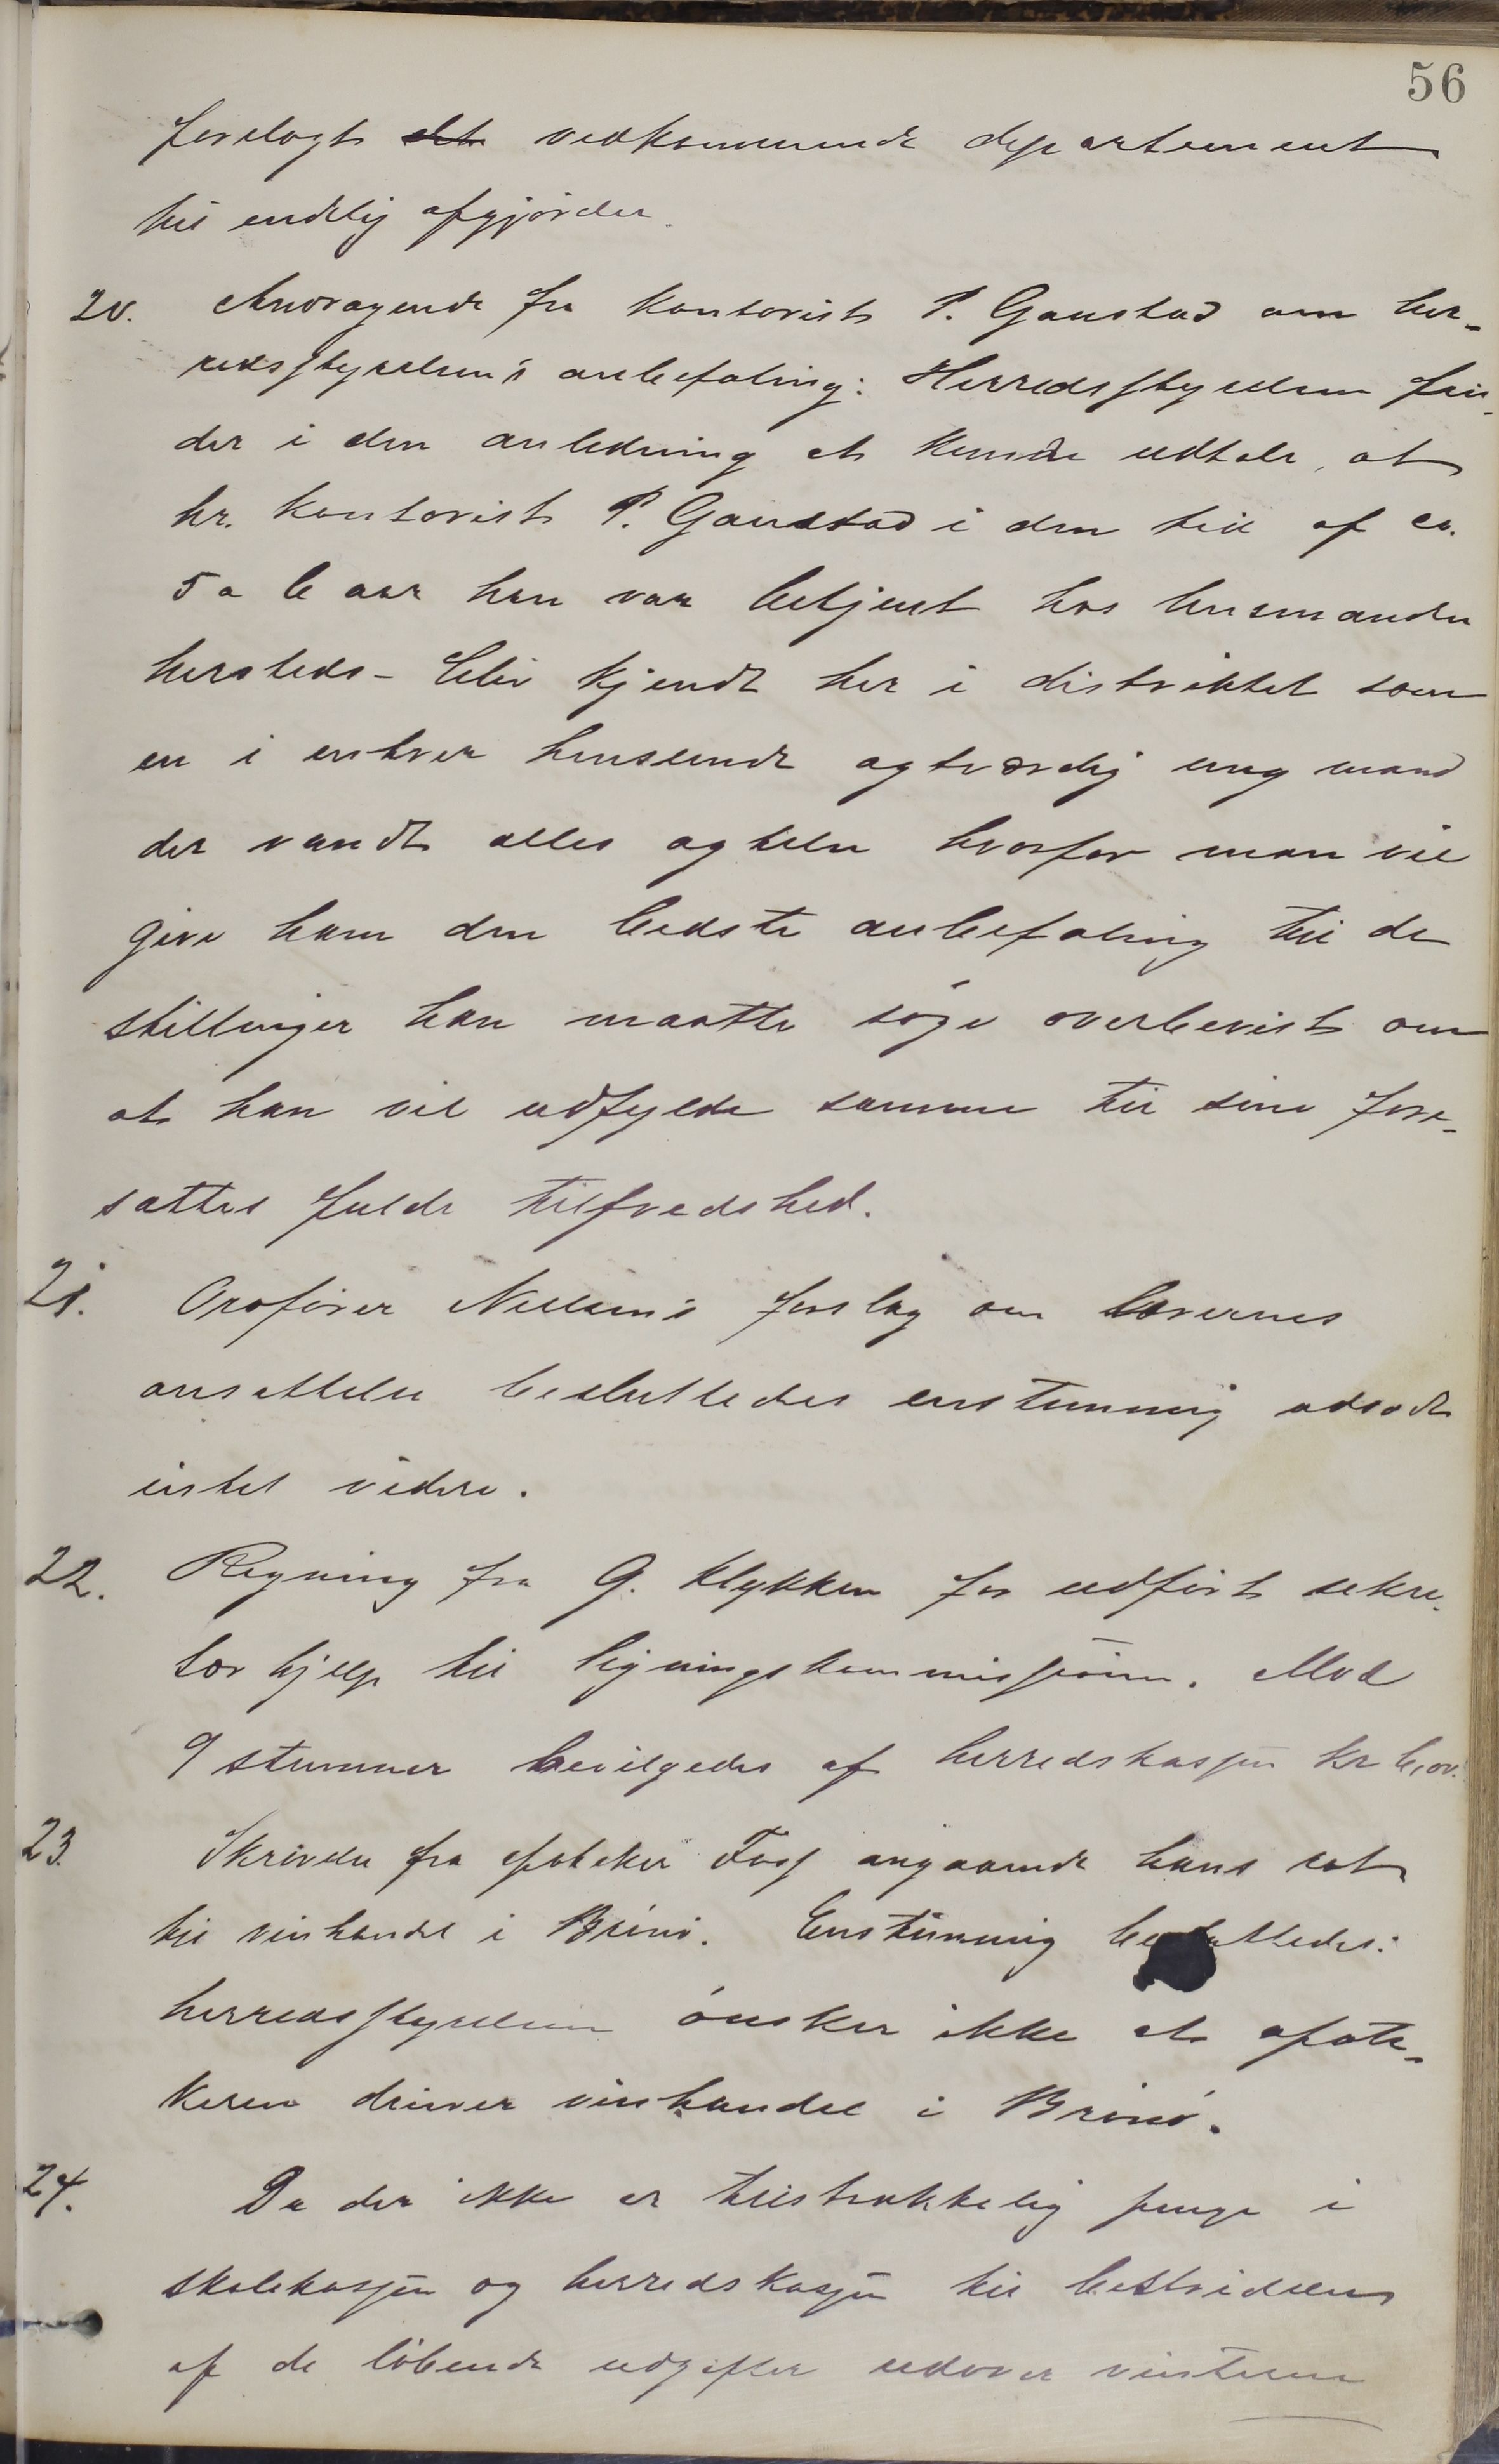 56
forelagt det vedkommende departement
til endelig afgjörelse.
20. Andragende fra kontorist P. Gaustad om her-
redsstyrelsen's anbefaling: Herredsstyrelsen fin-
der i den anledning at kunne udtale, at
hr. kontorist P. Gaustad i den tid af ca.
5 a 6 aar han var betjent hos lensmanden
hersteds - blev kjendt her i distriktet som
en i enhver henseende agtværdig ung mand
der vandt alles agtelse hvorfor man vil
give ham den bedste anbefaling til de
stillinger han maatte söge overbevist om
at han vil udfylde samme til sine fore-
sattes fulde tilfredshed.
21. Ordförer Nielsen's forslag om
ansættelse besluttedes enstemmig
intet videre.
22. Regning fra G. Klykken for udfört sekre-
tær hjelp til ligningskommissionen. Mod
9 stemmer bevilgedes af herredskassen kr 6,00.
23. Skrivelse fra apoteker Foss angaaende hans ret
til vinhandel i Brönö. Enstemmig besluttedes:
herredsstyrelsen önsker ikke at apote-
keren driver vinhandel i Brönö.
24. Da der ikke er tilstrækkelig penge i
skolekassen og herredskassen til bestridelse
af de löbende udgifter udover vinteren